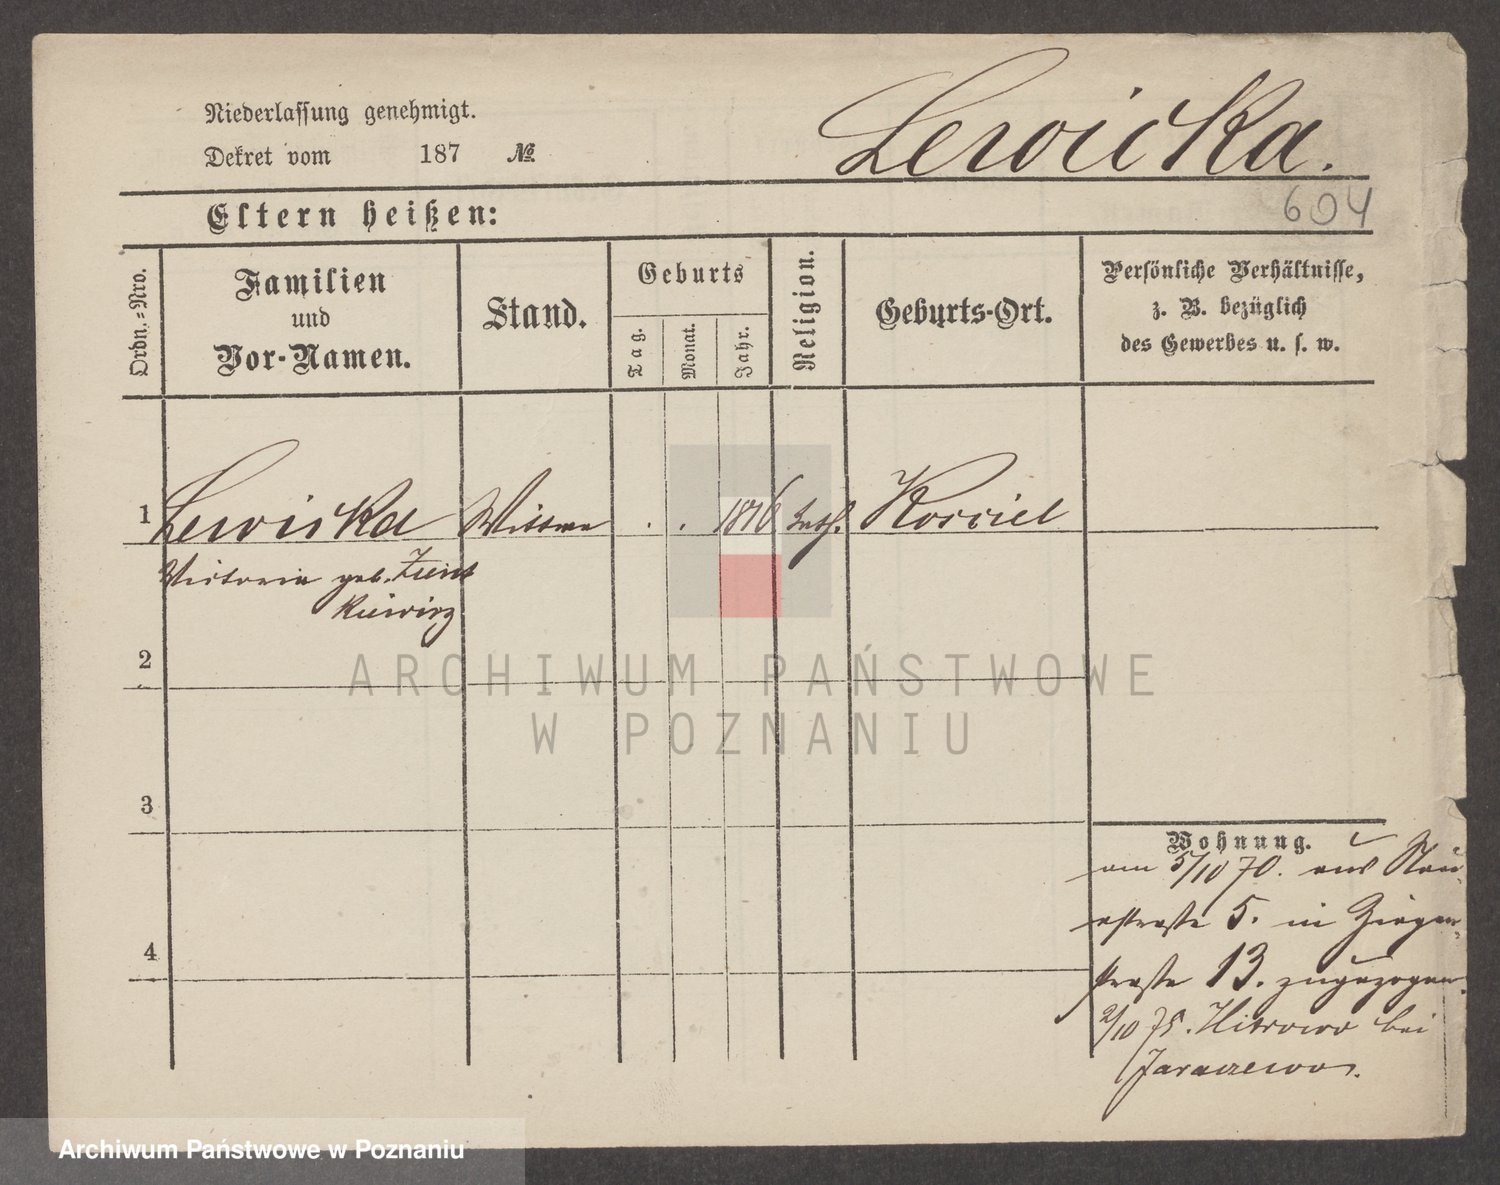 Niederlassung genehmigt.
Dekret vom 187 №
Lewicka.
604
Eltern heißen:
Ordn.=Nro.
Familien
und
Vor-Namen.
Stand.
Geburts
Tag.
Monat.
Jahr.
Religion.
Geburts-Ort.
Persönliche Verhältnisse,
z. B. bezüglich
des Gewerbes u. s. w.
1 Lewicka Wittwe . . 1816 kath.
Victoria geb.
kiewicz
2
3
4
Wohnung.
am 5/10 70. aus
straße 5. in Ziegen-
straße 13. zugezogen.
2/10 75. bei
Jaraczewo.
ARCHIWUM PAŃSTWOWE
W POZNANIU
Archiwum Państwowe w Poznaniu